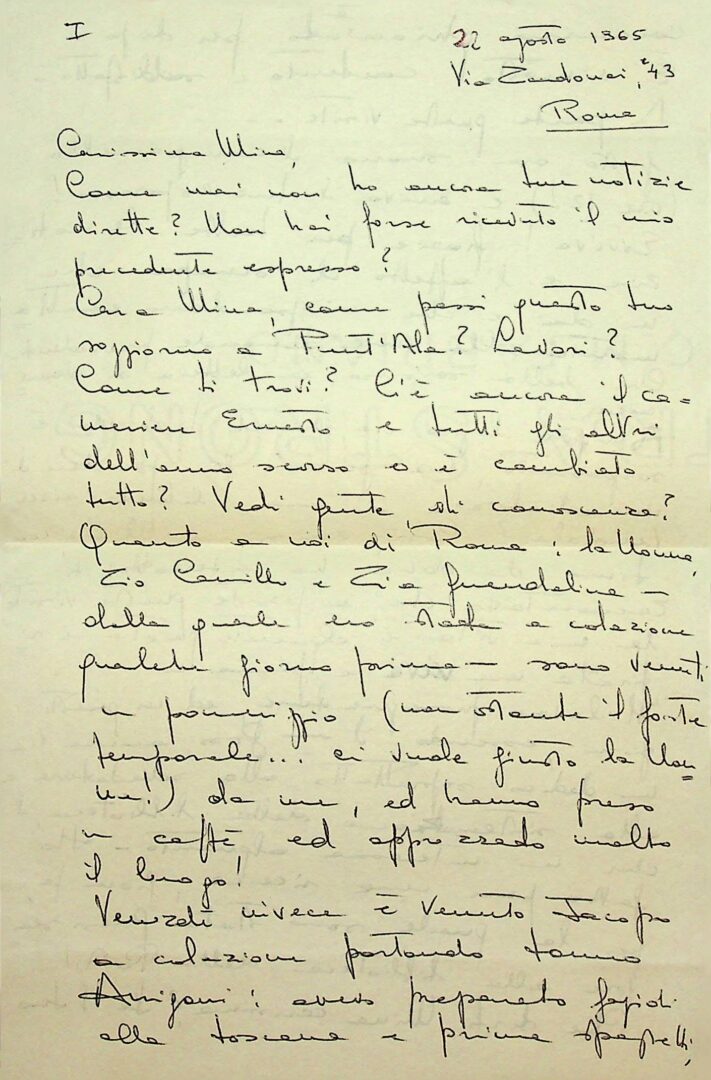 I
22 agosto 1965
Via Zandonai, 43
Roma
Carissima Mina,
Come mai non ho ancora tue notizie
dirette? Non hai forse ricevuto il mio
precedente espresso?
Cara Mina, come passi questo tuo
soggiorno a Punt'Ala? Lavori?
Come ti trovi? C'è ancora il ca=
meriere Ernesto e tutti gli altri
dell'anno scorso o è cambiato
tutto? Vedi gente di conoscenza?
Quanto a noi di Roma: la Nonna,
Zio Camillo e Zia Guendalina —
dalla quale ero stata a colazione
qualche giorno prima — sono venuti
un pomeriggio (non ostante il forte
temporale... ci vuole giusto la Non=
na!) da me, ed hanno preso
un caffè ed apprezzado molto
il luogo!
Venerdì invece è venuto Jacopo
a colazione portando tonno
Arrigoni: avevo preparato fagioli
alla toscana e prima spaghetti,